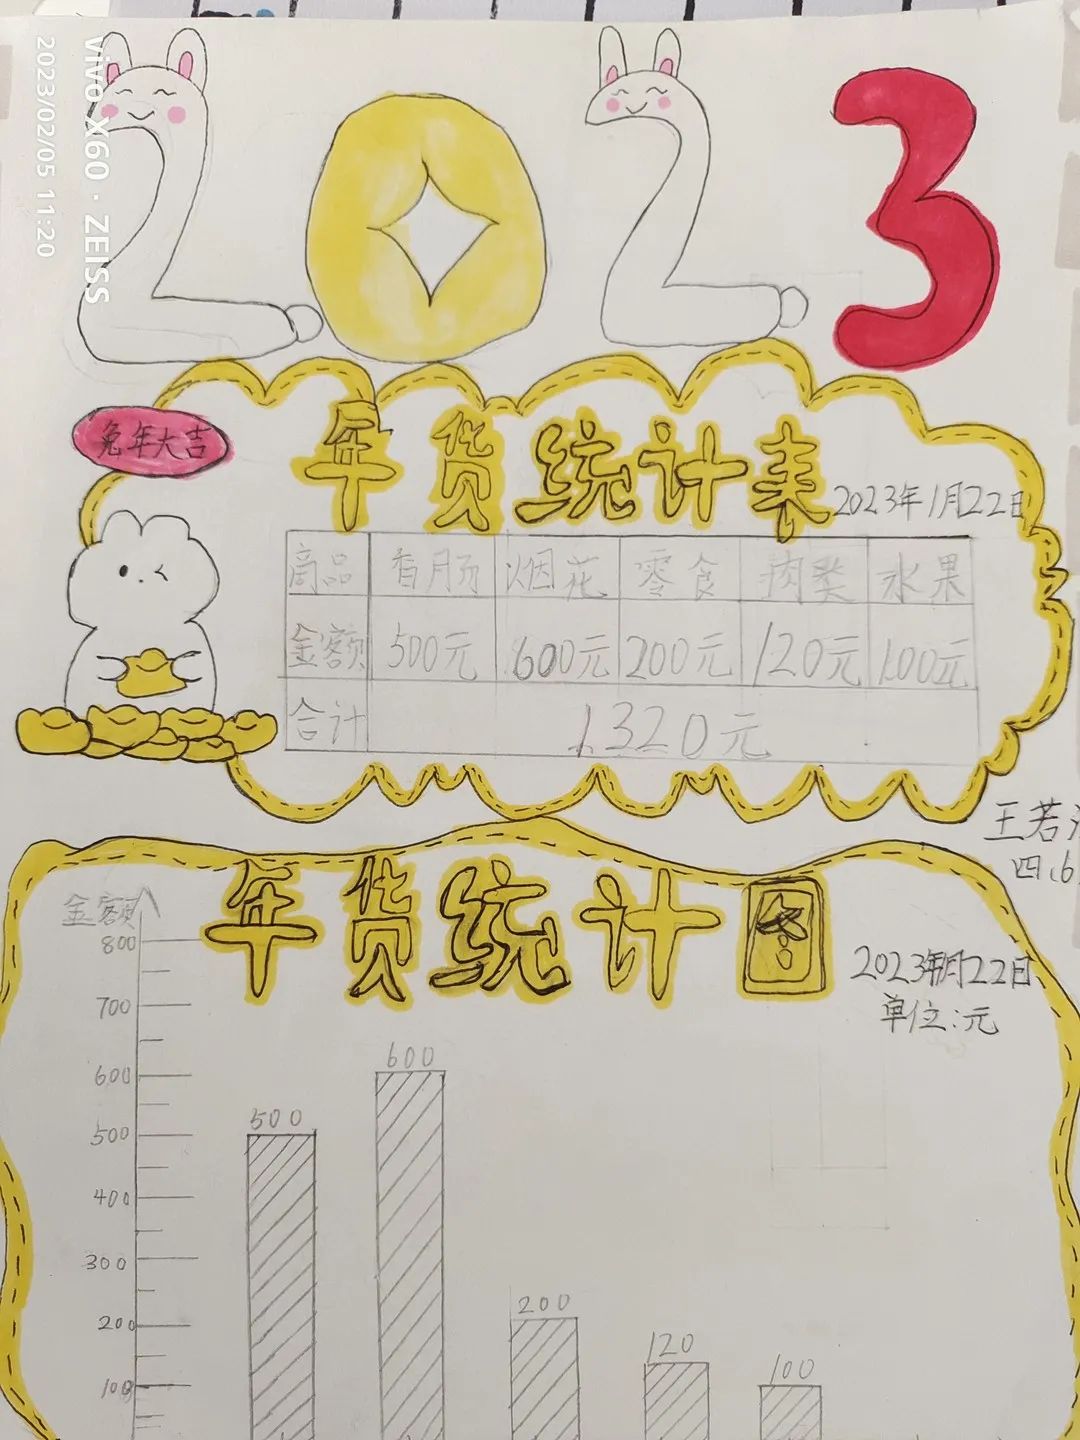 vivo X60 · ZEISS
2023/02/05 11:20
2023
兔年大吉
年货统计表
2023年1月22日
商品 香肠 烟花 零食 肉类 水果
金额 500元 600元 200元 120元 100元
合计 1320元
王若
四.6
年货统计图
金额
2023年1月22日
单位:元
800
700
600
500
400
300
200
100
500
600
200
120
100